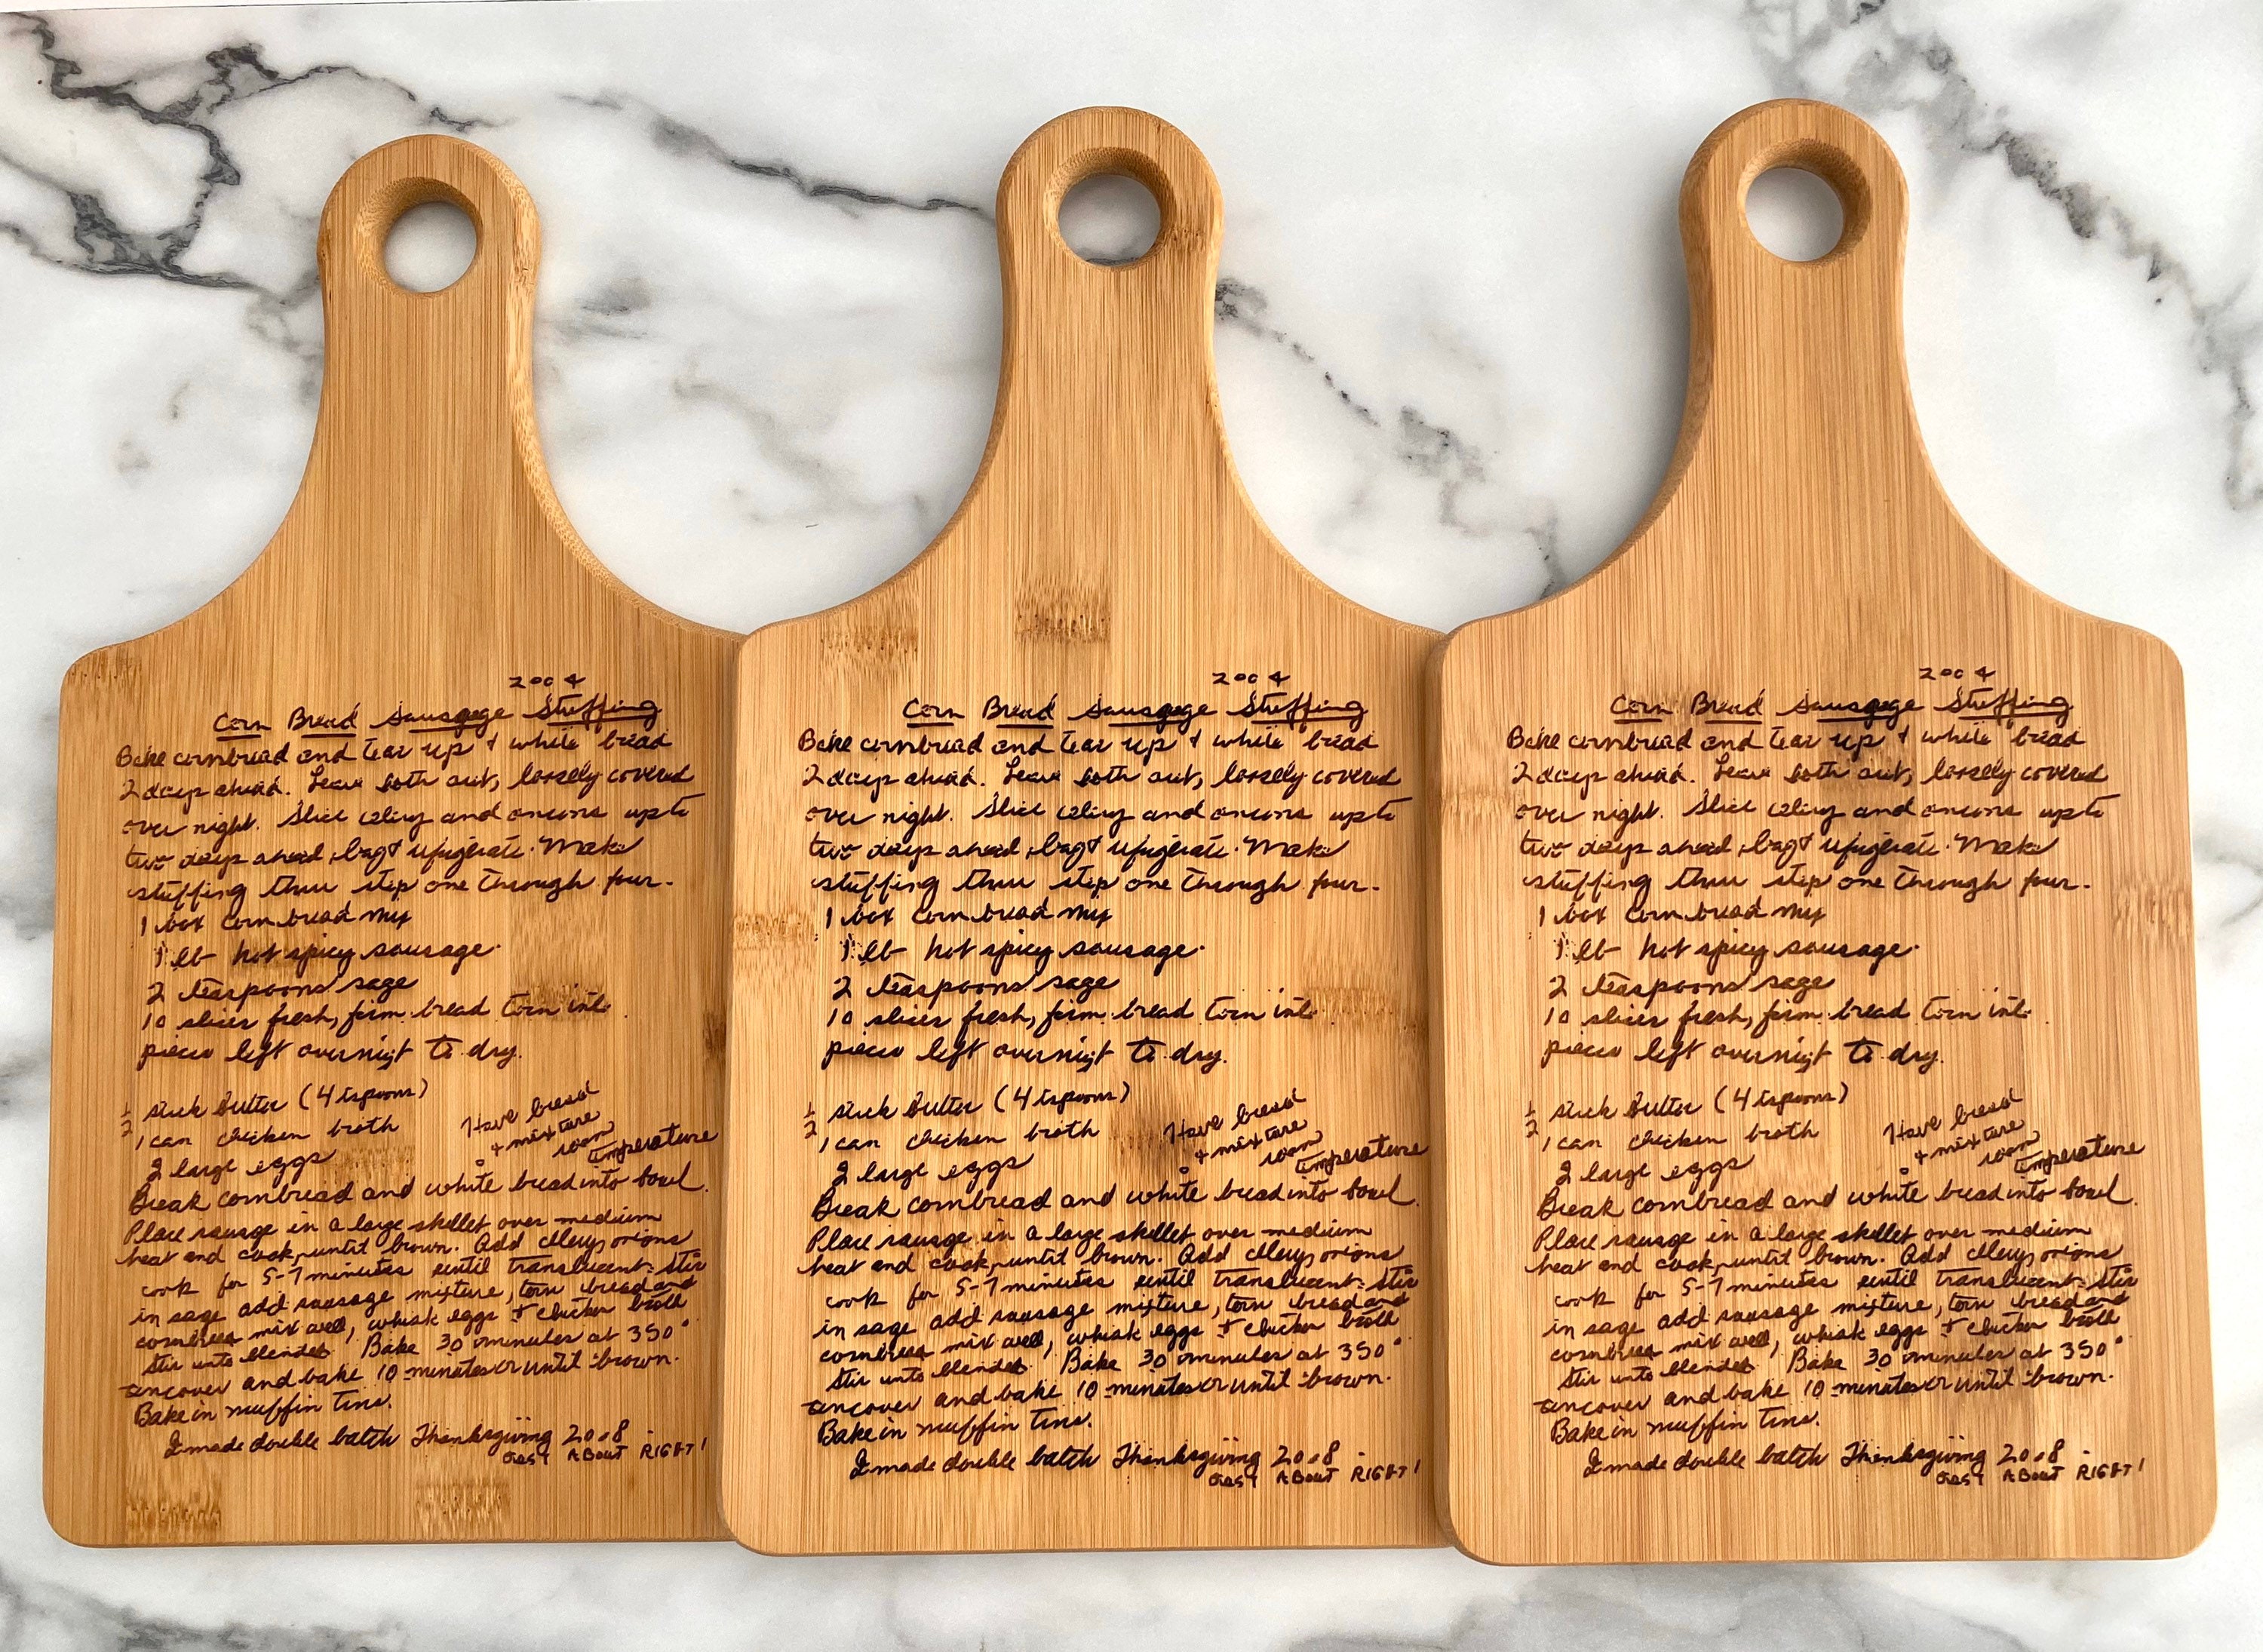 2004
Corn Bread Sausgege Stuffing
Bake cornbread and tear up & white bread
2 days ahead. Leave both out, loosely covered
over night. Slice celery and onions up to
two days ahead, bag & refrigerate. Make
stuffing thru step one through four.
1 box corn bread mix
1 lb hot spicy sausage
2 teaspoons sage
10 slices fresh, firm bread torn into
pieces left overnigt to dry.
1/2 stick butter (4 tspoons)
1 can chicken broth
2 large eggs
Have bread
& mixture
room
temperature
Break cornbread and white bread into bowl
Place sausage in a large skillet over medium
heat and cook until brown. Add celery, onions
cook for 5-7 minutes until translucent. Stir
in sage add sausage mixture, torn bread and
cornbread mix well, whisk eggs & chicken broth
stir unto blended. Bake 30 minutes at 350°
uncover and bake 10 minutes or until brown.
Bake in muffin tins.
I made double batch Thanksgiving 2008
Just About RIGHT!
2004
Corn Bread Sausgege Stuffing
Bake cornbread and tear up & white bread
2 days ahead. Leave both out, loosely covered
over night. Slice celery and onions up to
two days ahead, bag & refrigerate. Make
stuffing thru step one through four.
1 box corn bread mix
1 lb hot spicy sausage
2 teaspoons sage
10 slices fresh, firm bread torn into
pieces left overnigt to dry.
1/2 stick butter (4 tspoons)
1 can chicken broth
2 large eggs
Have bread
& mixture
room
temperature
Break cornbread and white bread into bowl
Place sausage in a large skillet over medium
heat and cook until brown. Add celery, onions
cook for 5-7 minutes until translucent. Stir
in sage add sausage mixture, torn bread and
cornbread mix well, whisk eggs & chicken broth
stir unto blended. Bake 30 minutes at 350°
uncover and bake 10 minutes or until brown.
Bake in muffin tins.
I made double batch Thanksgiving 2008
Just About RIGHT!
2004
Corn Bread Sausgege Stuffing
Bake cornbread and tear up & white bread
2 days ahead. Leave both out, loosely covered
over night. Slice celery and onions up to
two days ahead, bag & refrigerate. Make
stuffing thru step one through four.
1 box corn bread mix
1 lb hot spicy sausage
2 teaspoons sage
10 slices fresh, firm bread torn into
pieces left overnigt to dry.
1/2 stick butter (4 tspoons)
1 can chicken broth
2 large eggs
Have bread
& mixture
room
temperature
Break cornbread and white bread into bowl
Place sausage in a large skillet over medium
heat and cook until brown. Add celery, onions
cook for 5-7 minutes until translucent. Stir
in sage add sausage mixture, torn bread and
cornbread mix well, whisk eggs & chicken broth
stir unto blended. Bake 30 minutes at 350°
uncover and bake 10 minutes or until brown.
Bake in muffin tins.
I made double batch Thanksgiving 2008
Just About RIGHT!